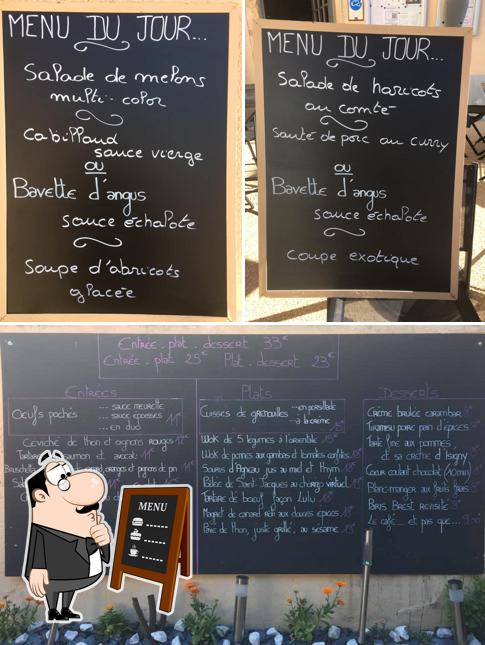 MENU DU JOUR...
Salade de melons
multi-color
Cabillaud
sauce vierge
ou
Bavette d'angus
sauce échalote
Soupe d'abricots
glacée
MENU DU JOUR...
Salade de haricots
au comté
Sauté de porc au curry
ou
Bavette d'angus
sauce échalote
Coupe exotique
Entrée . plat . dessert 33€
Entrée . plat 25€ Plat . dessert 23€
Entrées
Oeufs pochés
... sauce meurette
... sauce époisses
... en duo
11€
Ceviche de thon et oignons rouges 12€
saumon et avocat
MENU
Plats
Cuisses de grenouilles
en persillade
à la crème
Wok de 5 légumes à l'orientale
Wok de pennes aux gambas et tomates confites
Souris d'Agneau jus au miel et thym
St. Jacques au chorizo
Tartare de boeuf façon Lulu
Magret de canard rôti aux douces épices
Pavé de thon, juste grillé, au sésame
Desserts
Crème brulée carambar
Tiramisu poire pain d'épices
Tarte fine aux pommes
et sa crème d'Isigny
Coeur coulant chocolat (10min)
Blanc-manger aux fruits frais
Paris Brest revisité
Le café... et pas que...